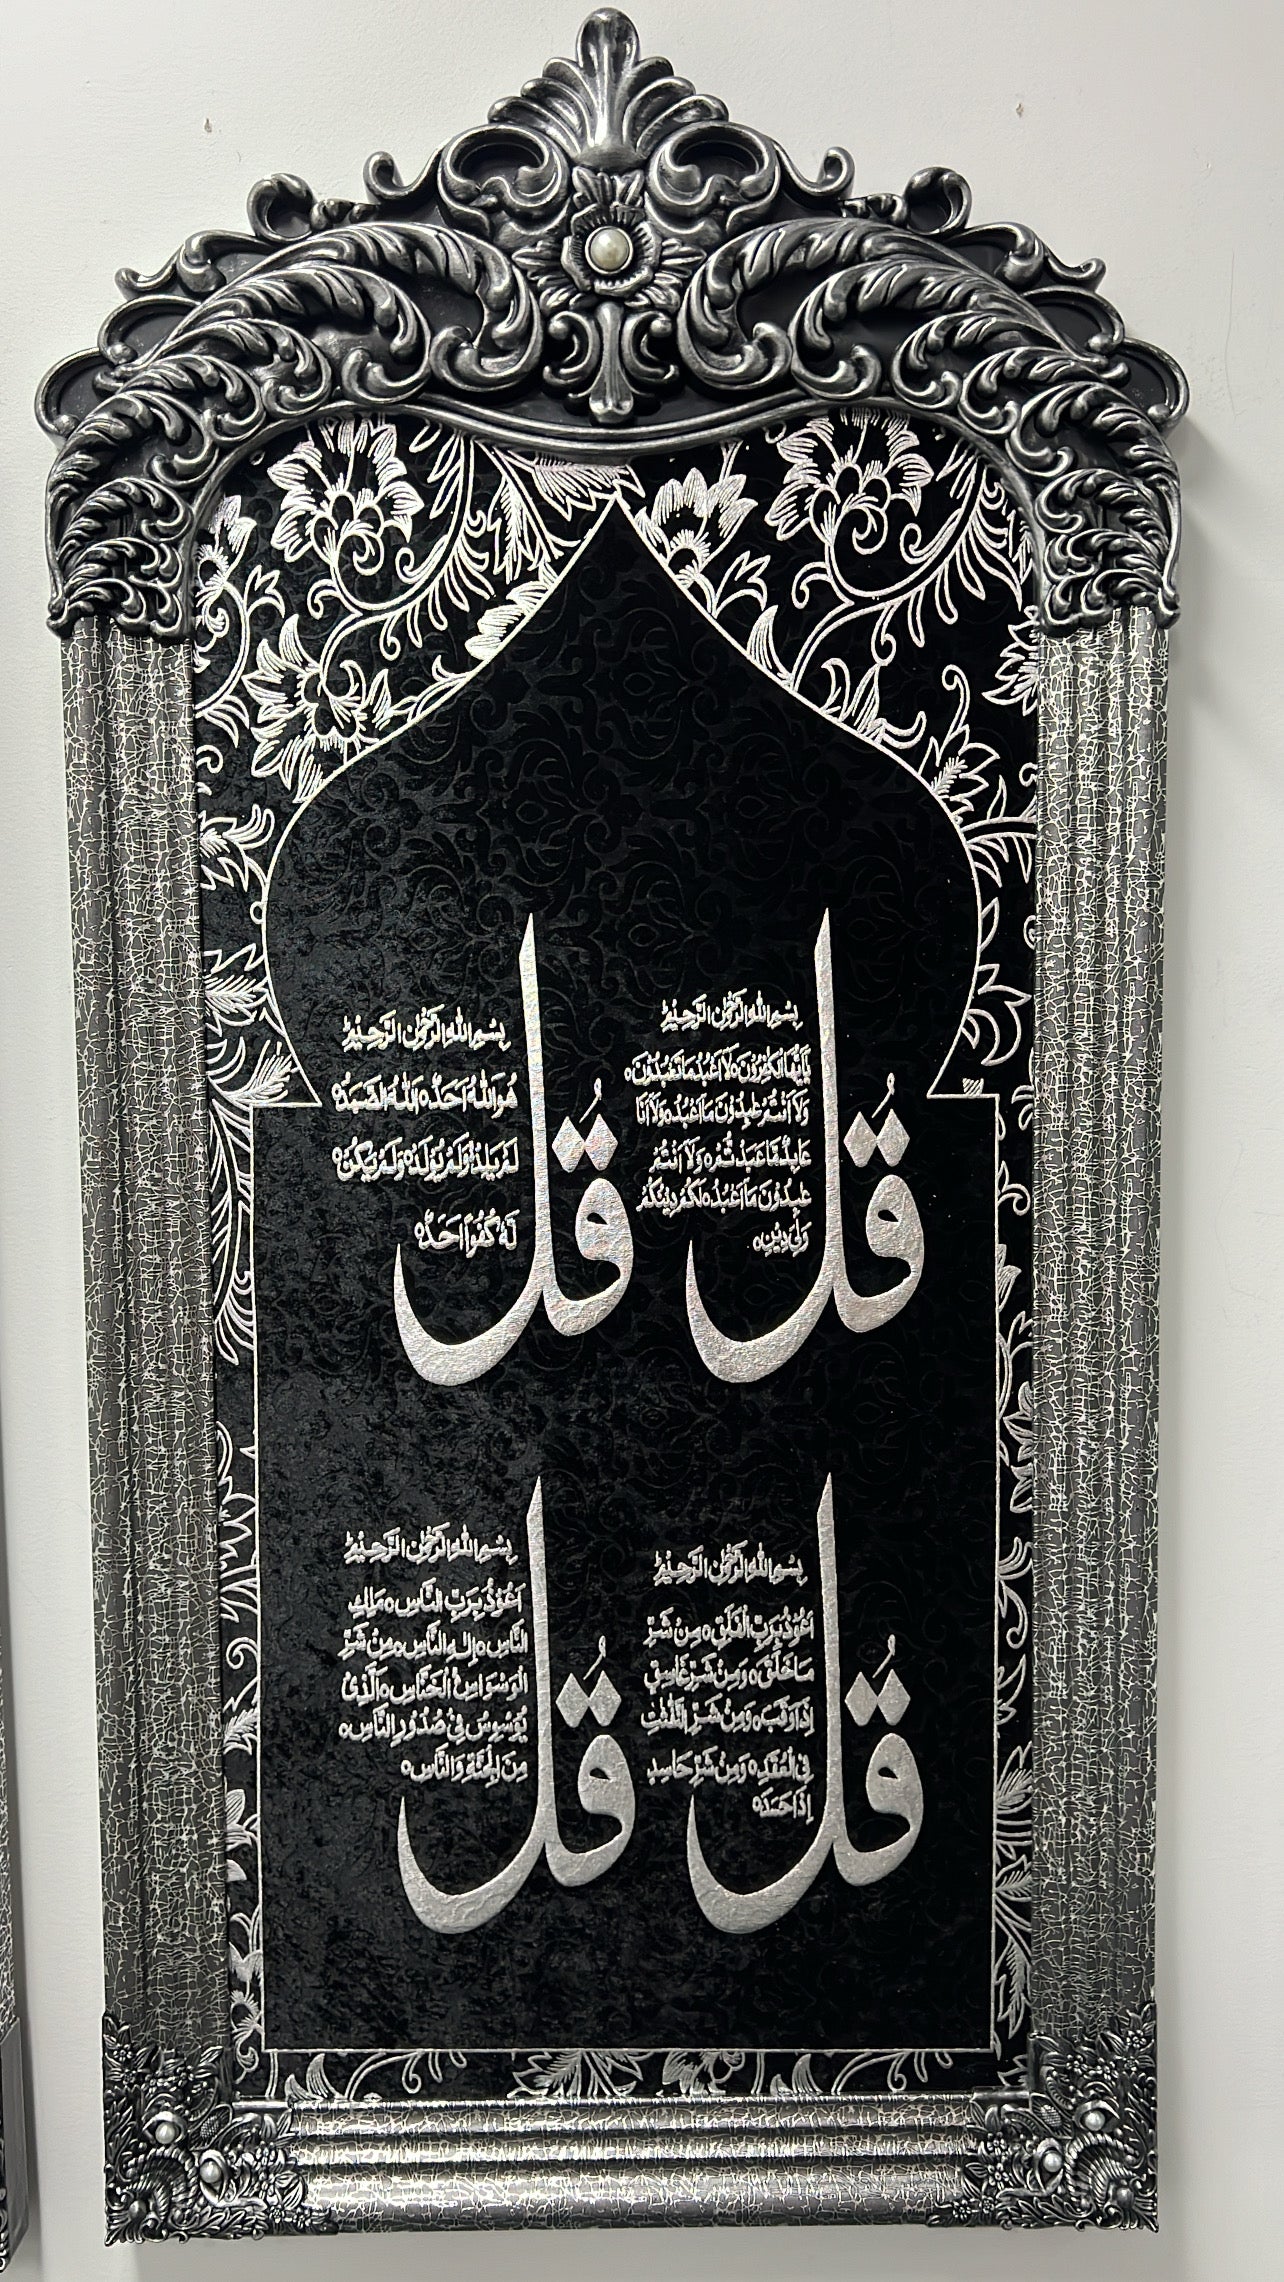 قُل
بِسْمِ اللهِ الرَّحْمٰنِ الرَّحِيْمِ
يٰۤاَيُّهَا الْكٰفِرُوْنَ ٥ لَاۤ اَعْبُدُ مَا تَعْبُدُوْنَ ٥
وَلَاۤ اَنْتُمْ عٰبِدُوْنَ مَاۤ اَعْبُدُ ٥ وَلَاۤ اَنَا
عَابِدٌ مَّا عَبَدْتُّمْ ٥ وَلَاۤ اَنْتُمْ
عٰبِدُوْنَ مَاۤ اَعْبُدُ ٥ لَكُمْ دِيْنُكُمْ
وَلِيَ دِيْنِ ٥
قُل
بِسْمِ اللهِ الرَّحْمٰنِ الرَّحِيْمِ
هُوَ اللهُ اَحَدٌ ٥ اَللهُ الصَّمَدُ ٥
لَمْ يَلِدْ ٥ وَلَمْ يُوْلَدْ ٥ وَلَمْ يَكُنْ
لَّهٗ كُفُوًا اَحَدٌ ٥
قُل
بِسْمِ اللهِ الرَّحْمٰنِ الرَّحِيْمِ
اَعُوْذُ بِرَبِّ الْفَلَقِ ٥ مِنْ شَرِّ
مَا خَلَقَ ٥ وَمِنْ شَرِّ غَاسِقٍ
اِذَا وَقَبَ ٥ وَمِنْ شَرِّ النَّفّٰثٰتِ
فِي الْعُقَدِ ٥ وَمِنْ شَرِّ حَاسِدٍ
اِذَا حَسَدَ ٥
قُل
بِسْمِ اللهِ الرَّحْمٰنِ الرَّحِيْمِ
اَعُوْذُ بِرَبِّ النَّاسِ ٥ مَلِكِ
النَّاسِ ٥ اِلٰهِ النَّاسِ ٥ مِنْ شَرِّ
الْوَسْوَاسِ الْخَنَّاسِ ٥ الَّذِيْ
يُوَسْوِسُ فِيْ صُدُوْرِ النَّاسِ ٥
مِنَ الْجِنَّةِ وَالنَّاسِ ٥